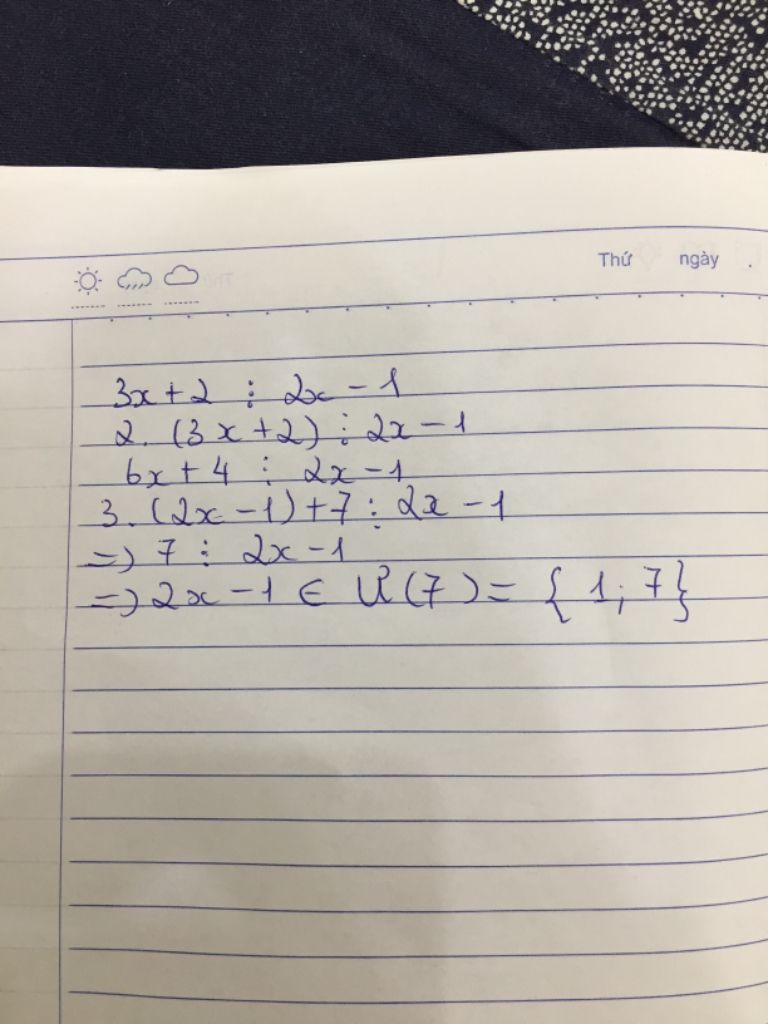 Thứ ngày .
3x + 2 ⋮ 2x - 1
2. (3x + 2) ⋮ 2x - 1
6x + 4 ⋮ 2x - 1
3. (2x - 1) + 7 ⋮ 2x - 1
=> 7 ⋮ 2x - 1
=> 2x - 1 ∈ Ư(7) = { 1; 7}